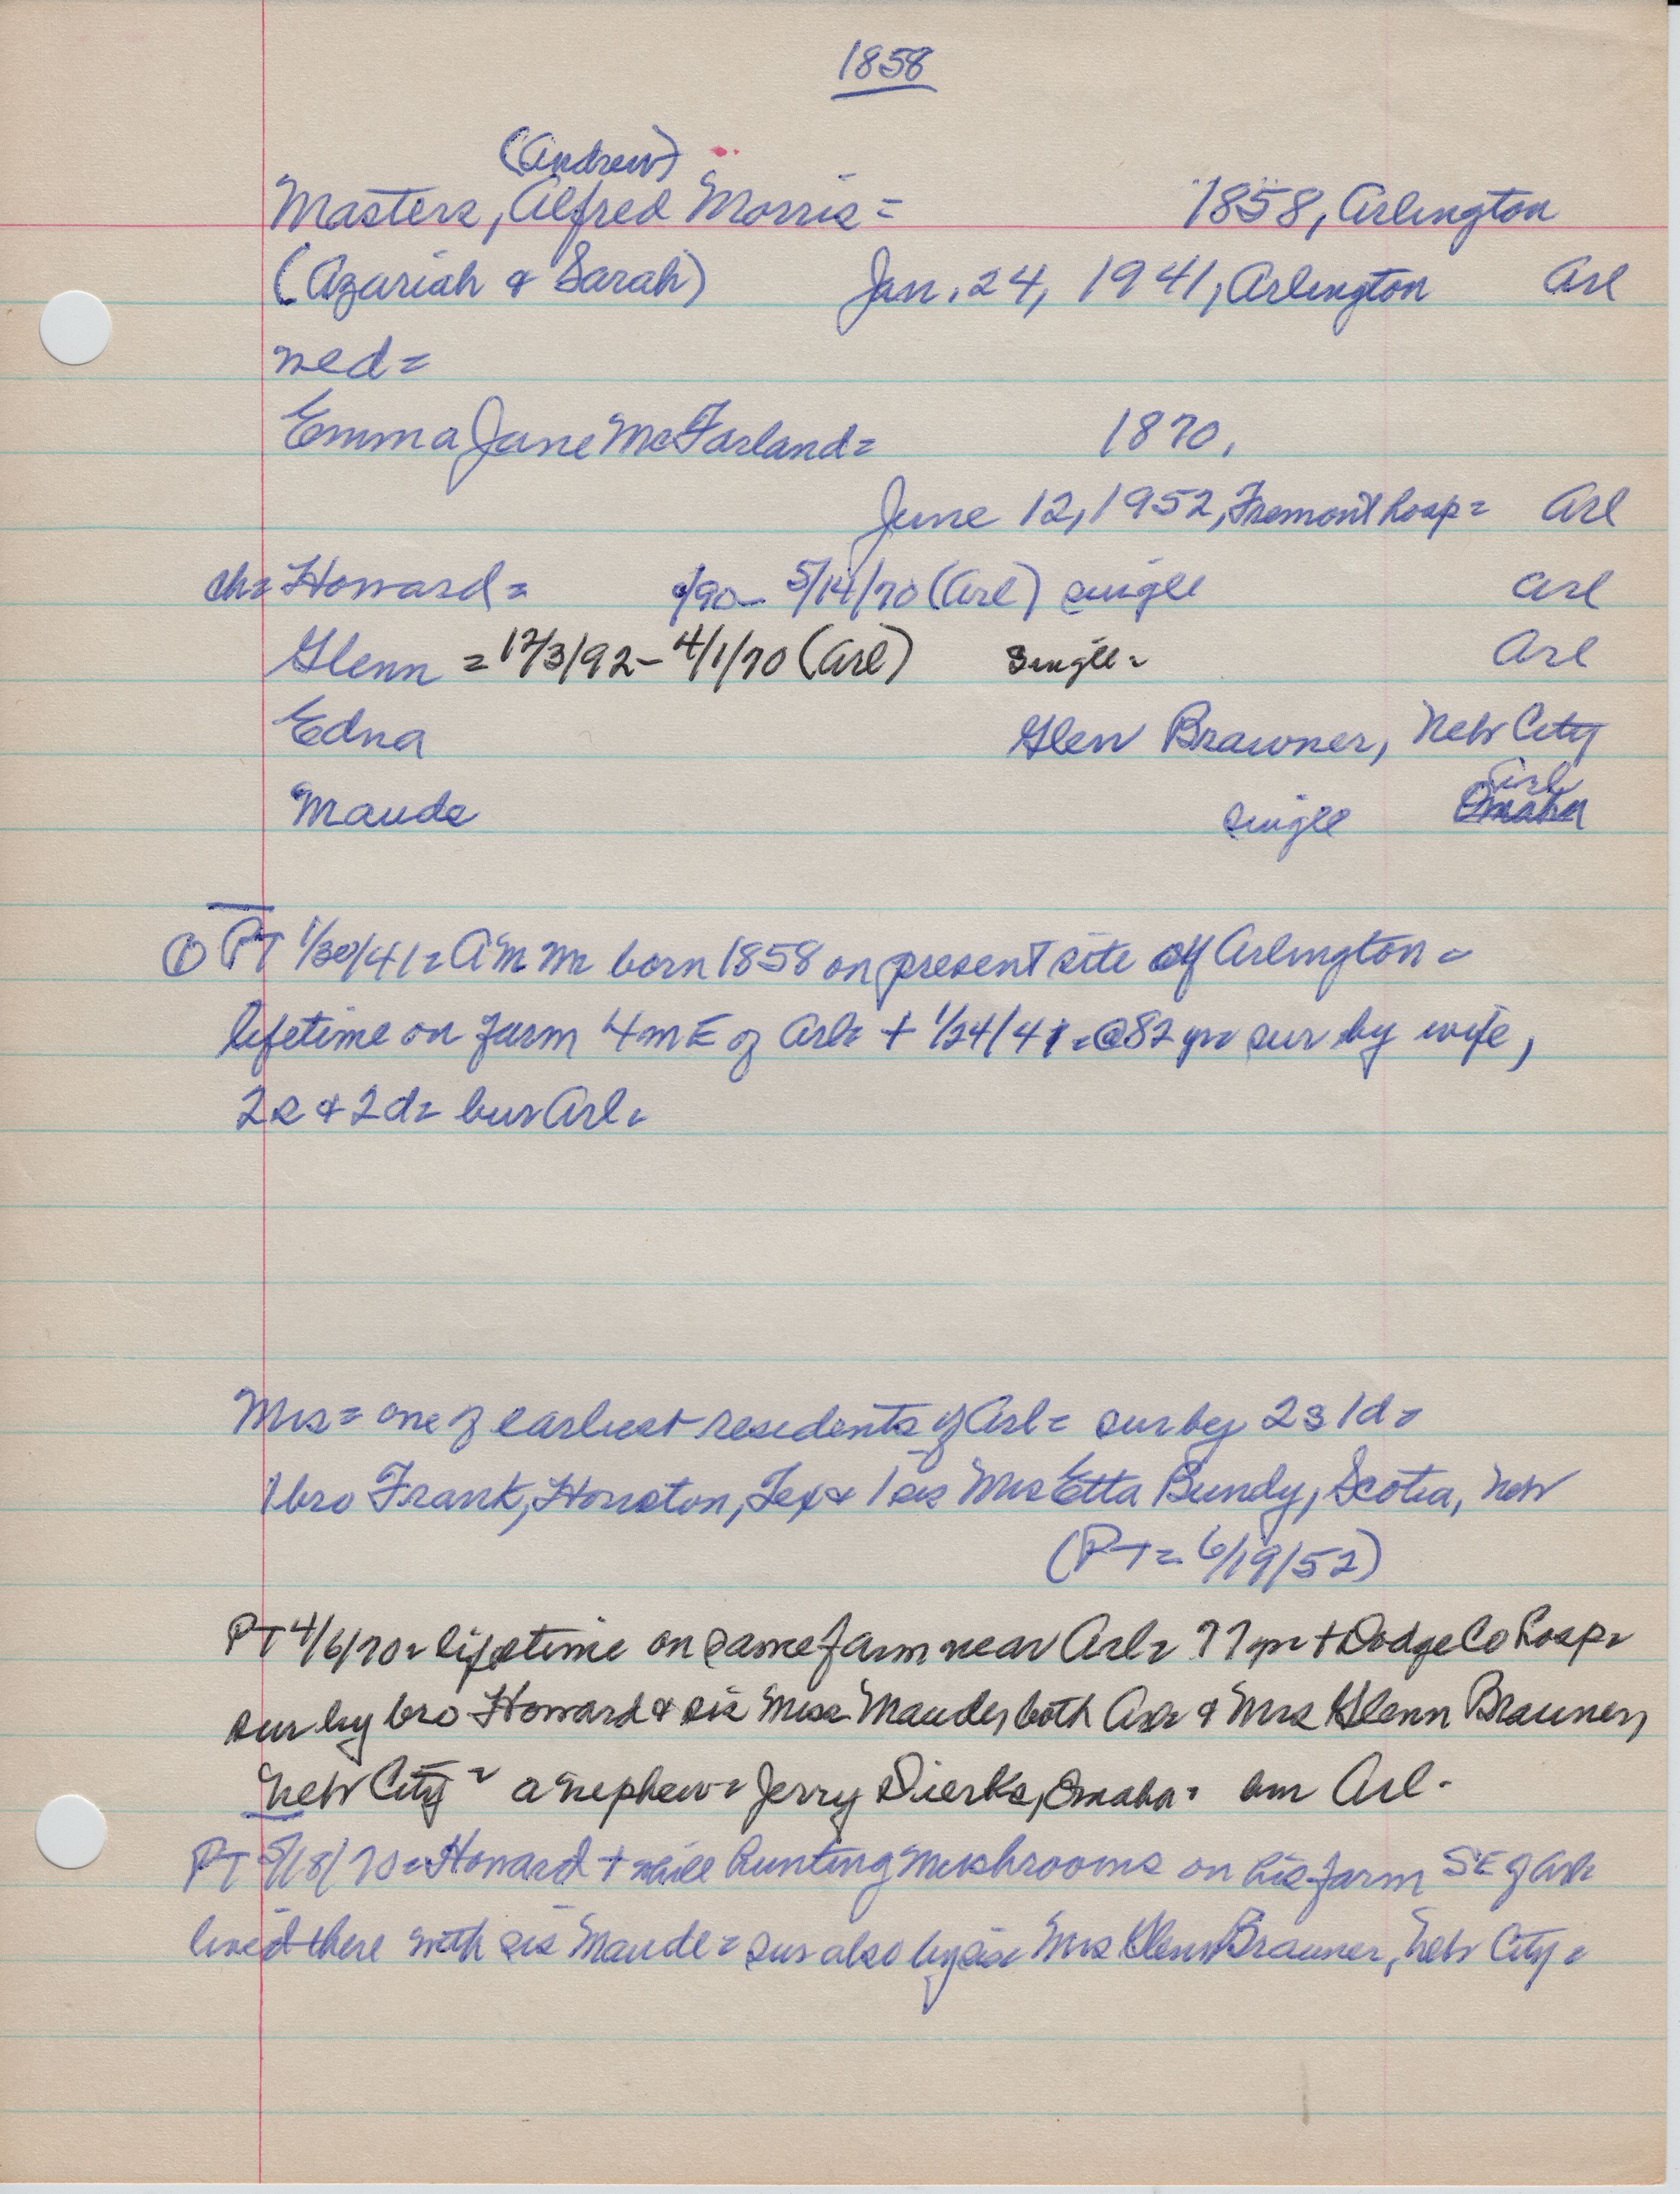 1858
(Andrew)
Masters, Alfred Morris = 1858, Arlington
(Azariah & Sarah) Jan. 24, 1941, Arlington Arl
wed =
Emma Jane McFarland = 1870,
June 12, 1952, Fremont hosp = Arl
ch = Howard = /90 - 5/14/70 (Arl) single Arl
Glenn = 12/3/92 - 4/1/70 (Arl) single = Arl
Edna Glen Brawner, Neb City
Maude single Arl
Omaha
① PT 1/30/41 = A M M born 1858 on present site of Arlington =
lifetime on farm 4 m E of Arl = + 1/24/41 = @ 82 yr = sur by wife,
2 s & 2 d = bur Arl =
Mrs = one of earliest residents of Arl = sur by 2 s 1 d =
1 bro Frank, Houston, Tex & 1 sis Mrs Etta Bundy, Scotia, Neb
(PT = 6/19/52)
PT 4/6/70 = lifetime on same farm near Arl = 77 yr = + Dodge Co hosp =
sur by bro Howard & sis Miss Maude, both Arl & Mrs Glenn Brawner,
Neb City = a nephew = Jerry Dierks, Omaha = bur Arl -
PT 5/18/70 = Howard + while hunting mushrooms on his farm SE of Arl =
lived there with sis Maude = sur also by sis Mrs Glenn Brawner, Neb City =